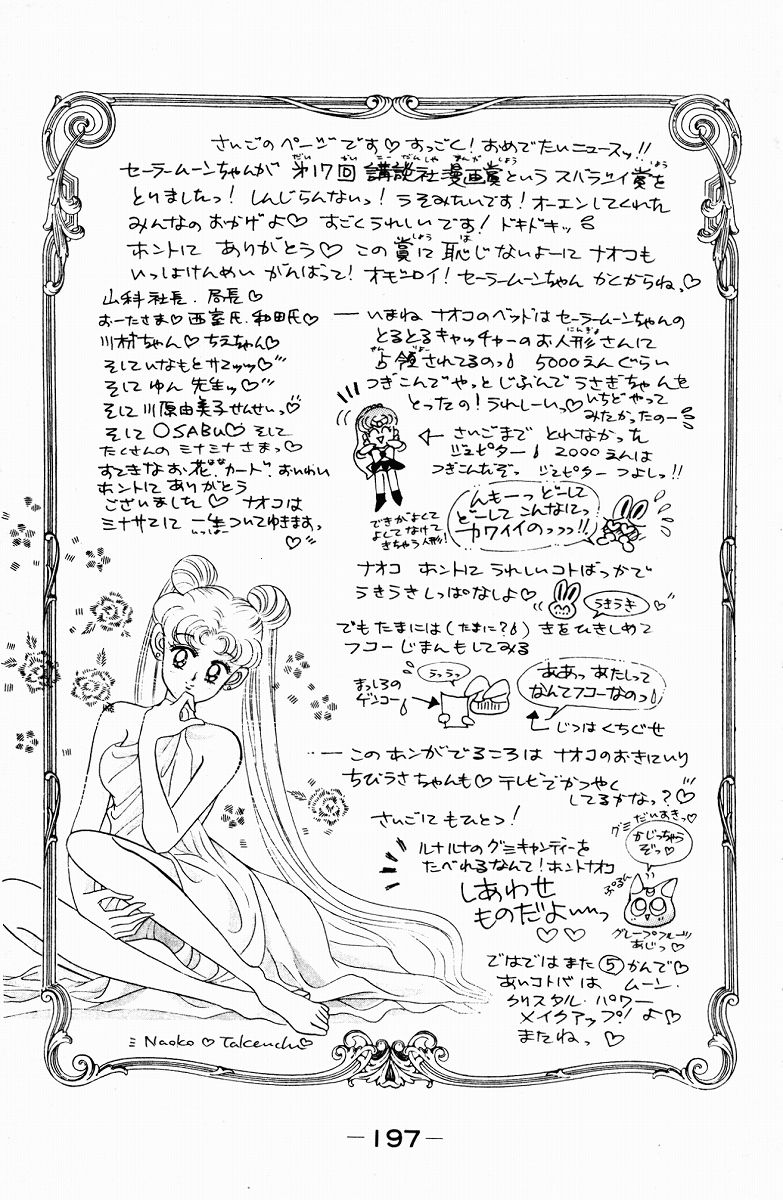 さいごのページです♡すっごく!おめでたいニュースッ!!
セーラームーンちゃんが 第17回 講談社漫画賞という スバラシイ賞を
とりましたっ! しんじらんないっ! うそみたいです! オーエンしてくれた
みんなのおかげよ♡ すごくうれしいです! ドキドキッ
ホントに ありがとう♡ この賞に 恥じないよーに ナオコも
いっしょけんめい がんばって! オモシロイ! セーラームーンちゃん かくからねっ♡
山科社長.局長♡
おーたさま♡西室氏.和田氏♡
川村ちゃん♡ちえちゃん♡
そしていなもとサマッッ♡
そして ゆん 先生ッ♡
そして 川原由美子せんせいっ♡
そして OSABU♡ そして
たくさんの ミナミナさまっ♡
すてきなお花.カード.おいわい
ホントに ありがとう
ございました♡ ナオコは
ミナサマに 一生ついてゆきますっ♡
― いまね ナオコのベッドは セーラームーンちゃんの
とるとるキャッチャーの お人形さんに
占領されてるのっ 5000えんぐらい
つぎこんでやっと じぶんで うさぎちゃんを
とったの! うれしーいっ♡ いちど やって
みたかったのー
← さいごまで とれなかった
ジュピター 2000えんは
つぎこんだぞっ ジュピター つよしっ!!
できがよくて
よくてなけて
きちゃう人形!
んもーっ どーして
どーして こんなにっ
カワイイのっっっ!!
ナオコ ホントに うれしいコトばっかで
うきうきしっぱなしよ♡
うきうき
でもたまには(たまに?) きをひきしめて
フコーじまんもしてみる
まっしろの
ゲンコー
うっうっ
ああっ あたしって
なんてフコーなのっ
じつはくちぐせ
― この ホンがでるころは ナオコのおきにいり
ちびうさちゃんも♡ テレビでかつやく
してるかなっ?♡
さいごに もひとつ!
ルナルナの グミキャンディーを
たべれるなんて! ホントナオコ
しあわせ
ものだよーっ
♡♡
グミだいすきっ♡
かじっちゃう
ぞっ♡
ぷるん
グレープフルーツ
あじっ♡
ではではまた⑤かんで♡
あいコトバは ムーン・
クリスタル・パワー
メイクアップ! よ♡
またねっ♡
Naoko♡Takeuchi♡
―197―